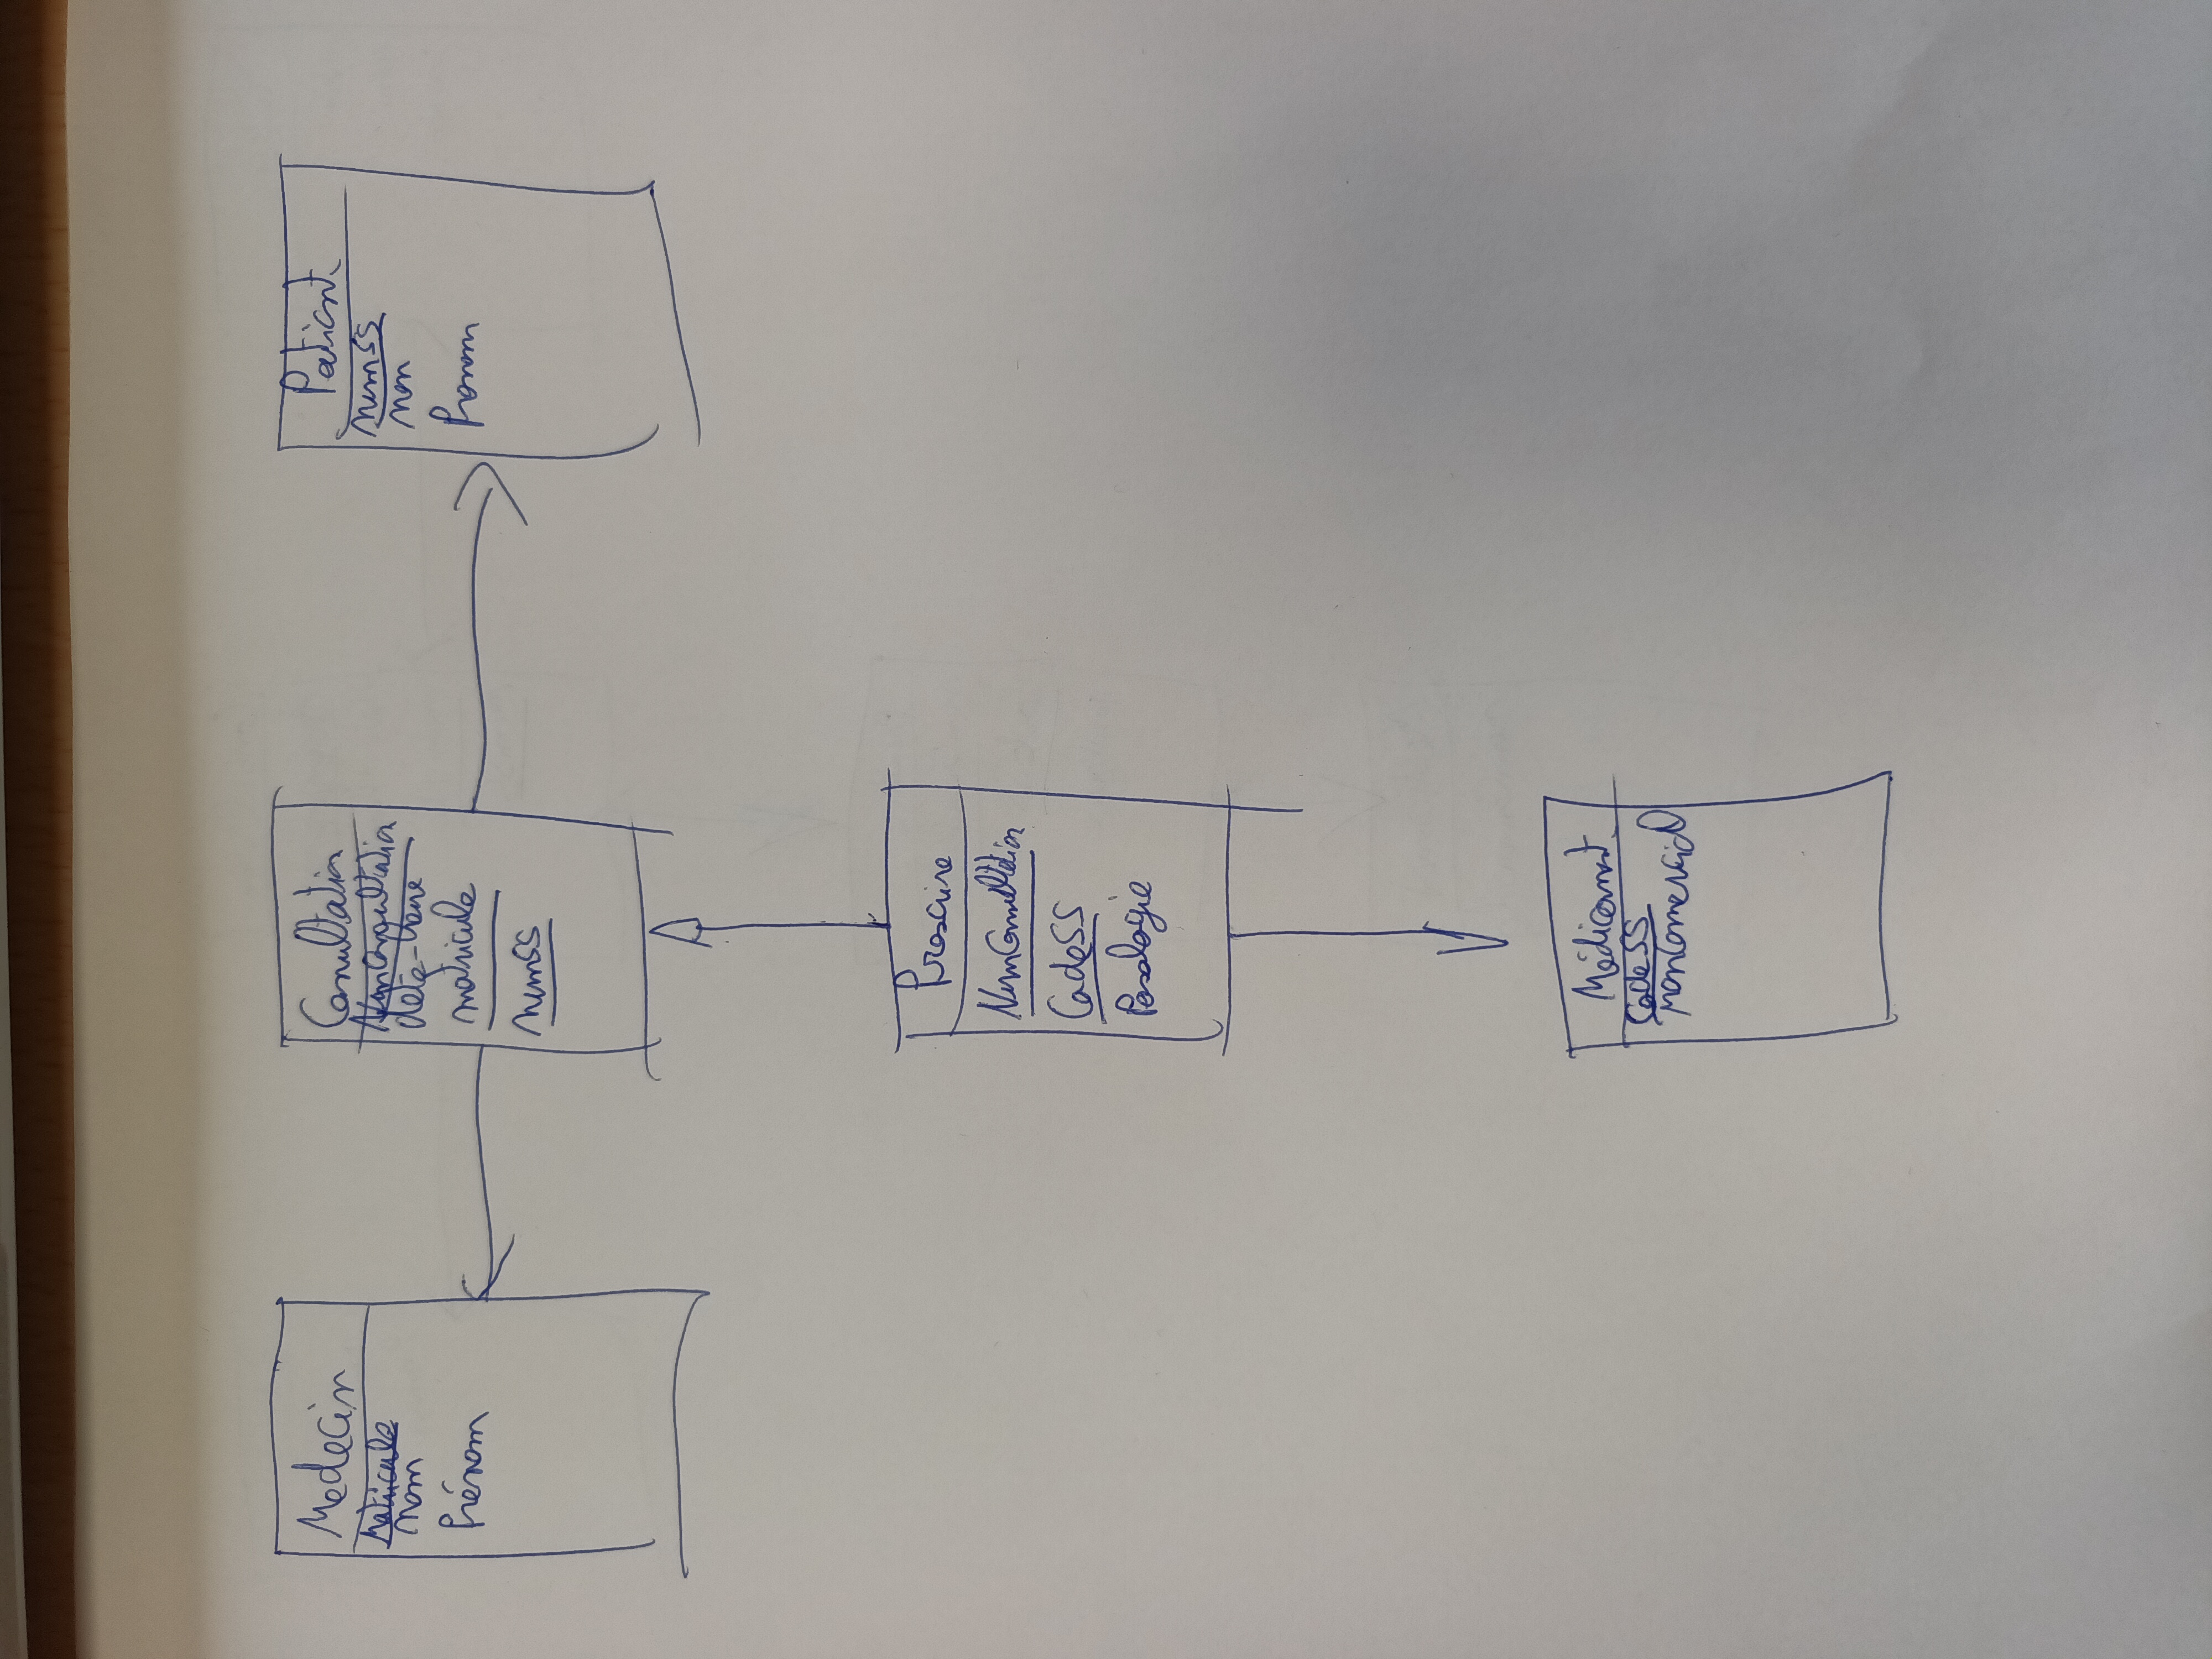 Medecin
Matricule
nom
Prénom
Consultation
NumConsultation
date-heure
matricule
numSS
Patient
numSS
nom
Prenom
Prescrire
NumConsultation
CodeSS
Posologie
Médicament
CodeSS
nomComercial